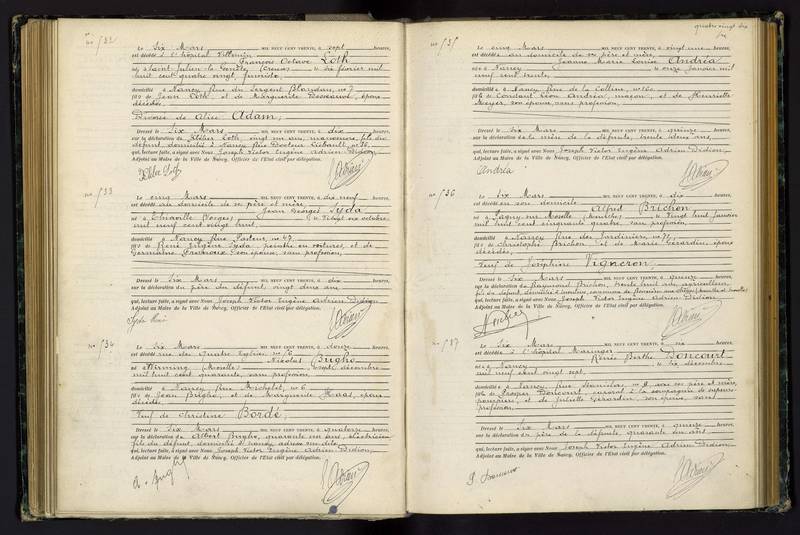 no 532
Le six Mars MIL NEUF CENT TRENTE, à sept heures,
est décédé à l'hôpital Villemin
François Octave Loth
né à Saint Julien la Genête, (Creuse) le dix février mil
huit cent quatre vingt,
domicilié à Nancy, Rue du Sergent Blandan, no 7
fils de Jean Loth, et de Marguerite époux
décédés.
Divorcé de Alice Adam,
Dressé le six Mars MIL NEUF CENT TRENTE, à dix heures,
sur la déclaration de Loth, vingt ans, fils du
défunt domicilié à Nancy Rue Docteur Liébault, no 36,
qui, lecture faite, a signé avec Nous Joseph Victor Eugène Adrien Didion,
Adjoint au Maire de la Ville de Nancy, Officier de l'Etat civil par délégation.
no 533
Le cinq Mars MIL NEUF CENT TRENTE, à dix neuf heures,
est décédé au domicile de ses père et mère,
Jean Georges Syda
né à Thaville (Vosges) le vingt six octobre
mil neuf cent vingt huit,
domicilié à Nancy Rue Pasteur, no 47
fils de René Eugène Syda, peintre en voitures, et de
Germaine son épouse, sans profession,
Dressé le six Mars MIL NEUF CENT TRENTE, à heures,
sur la déclaration du père du défunt, vingt deux ans,
qui, lecture faite, a signé avec Nous Joseph Victor Eugène Adrien Didion
Adjoint au Maire de la Ville de Nancy, Officier de l'Etat civil par délégation.
no 534
Le six Mars MIL NEUF CENT TRENTE, à douze heures,
est décédé rue des Quatre Eglises, no 76
Nicolas Brigho
né à (Moselle) le sept décembre
mil huit cent quarante, sans profession,
domicilié à Nancy, Rue Michelet, no 6
fils de Jean Brigho, et de Marguerite Haas, époux
décédés.
Veuf de Christine Bordé,
Dressé le six Mars MIL NEUF CENT TRENTE, à quatorze heures,
sur la déclaration de Albert Brigho, quarante un ans, électricien
fils du défunt, domicilié à Nancy, même rue
qui, lecture faite, a signé avec Nous Joseph Victor Eugène Adrien Didion,
Adjoint au Maire de la Ville de Nancy, Officier de l'Etat civil par délégation.
quatre vingt dix
no 535
Le cinq Mars MIL NEUF CENT TRENTE, à vingt une heures,
est décédée au domicile de ses père et mère,
Jeanne Marie Louise Andréa
née à Nancy le onze janvier mil
neuf cent trente,
domiciliée à Nancy Rue de la Colline, no
fille de Constant Léon Andréa, maçon, et de Henriette
Meyer, son épouse, sans profession,
Dressé le six Mars MIL NEUF CENT TRENTE, à quinze heures,
sur la déclaration de la mère de la défunte, trente deux ans,
qui, lecture faite, a signé avec Nous Joseph Victor Eugène Adrien Didion,
Adjoint au Maire de la Ville de Nancy, Officier de l'Etat civil par délégation.
Andréa
no 536
Le six Mars MIL NEUF CENT TRENTE, à dix heures,
est décédé en son domicile
Alfred Brichon
né à Pagny sur Moselle (Meurthe) le vingt huit janvier
mil huit cent cinquante quatre, sans profession,
domicilié à Nancy, Rue des Jardiniers, no
fils de Christophe Brichon, et de Marie Gérardin, époux
décédés,
Veuf de Joséphine Vigneron
Dressé le six Mars MIL NEUF CENT TRENTE, à quinze heures,
sur la déclaration de Raymond Brichon, trente huit ans, agriculteur,
fils du défunt, domicilié à
qui, lecture faite, a signé avec Nous Joseph Victor Eugène Adrien Didion
Adjoint au Maire de la Ville de Nancy, Officier de l'Etat civil par délégation.
no 537
Le six Mars MIL NEUF CENT TRENTE, à six heures,
est décédée à l'hôpital Maringer
Renée Berthe Doncourt
née à Nancy le six décembre
mil neuf cent vingt sept,
domiciliée à Nancy, Rue Stanislas, no avec ses père et mère,
fille de Prosper Doncourt, caporal à la compagnie de sapeurs
pompiers, et de Juliette Gérardin, son épouse, sans
profession,
Dressé le six Mars MIL NEUF CENT TRENTE, à quinze heures,
sur la déclaration du père de la défunte, quarante un ans
qui, lecture faite, a signé avec Nous Joseph Victor Eugène Adrien Didion
Adjoint au Maire de la Ville de Nancy, Officier de l'Etat civil par délégation.